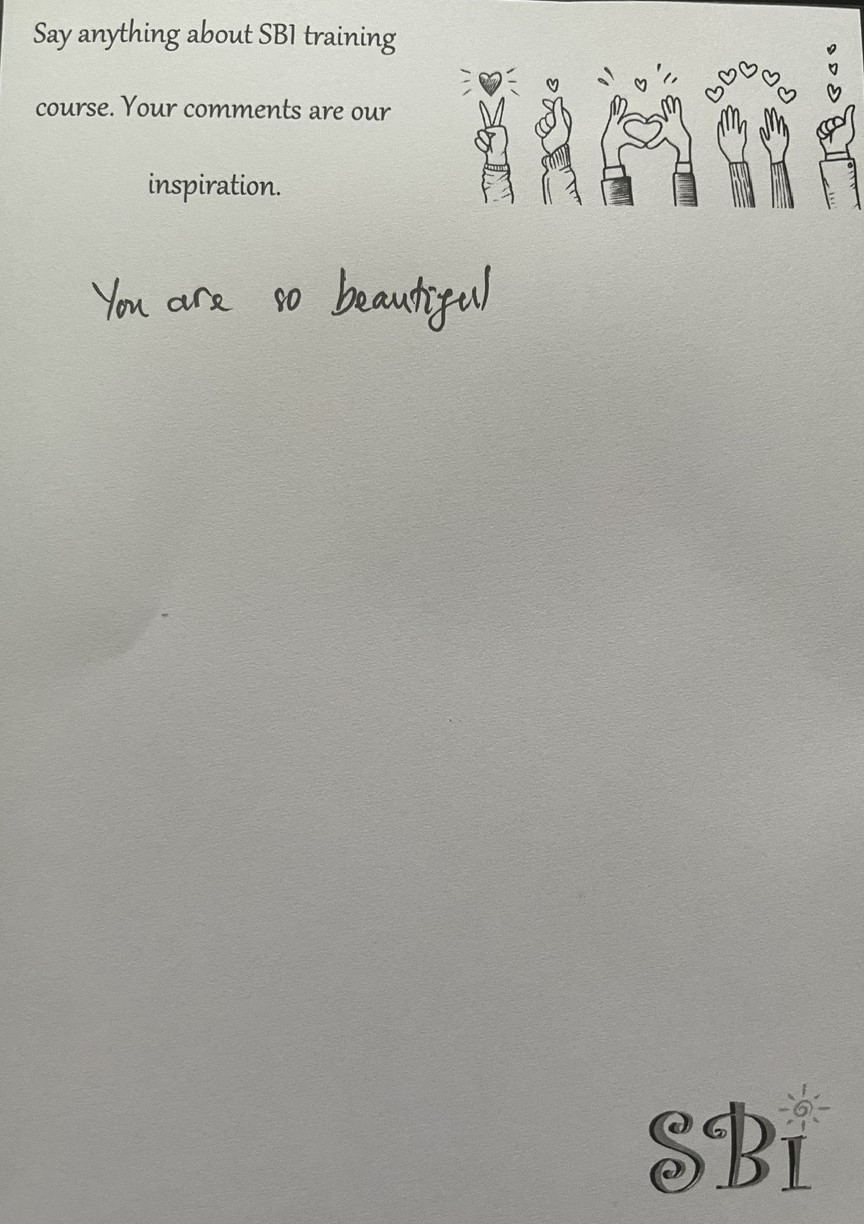 Say anything about SBI training
course. Your comments are our
inspiration.
You are so beautiful
SBi